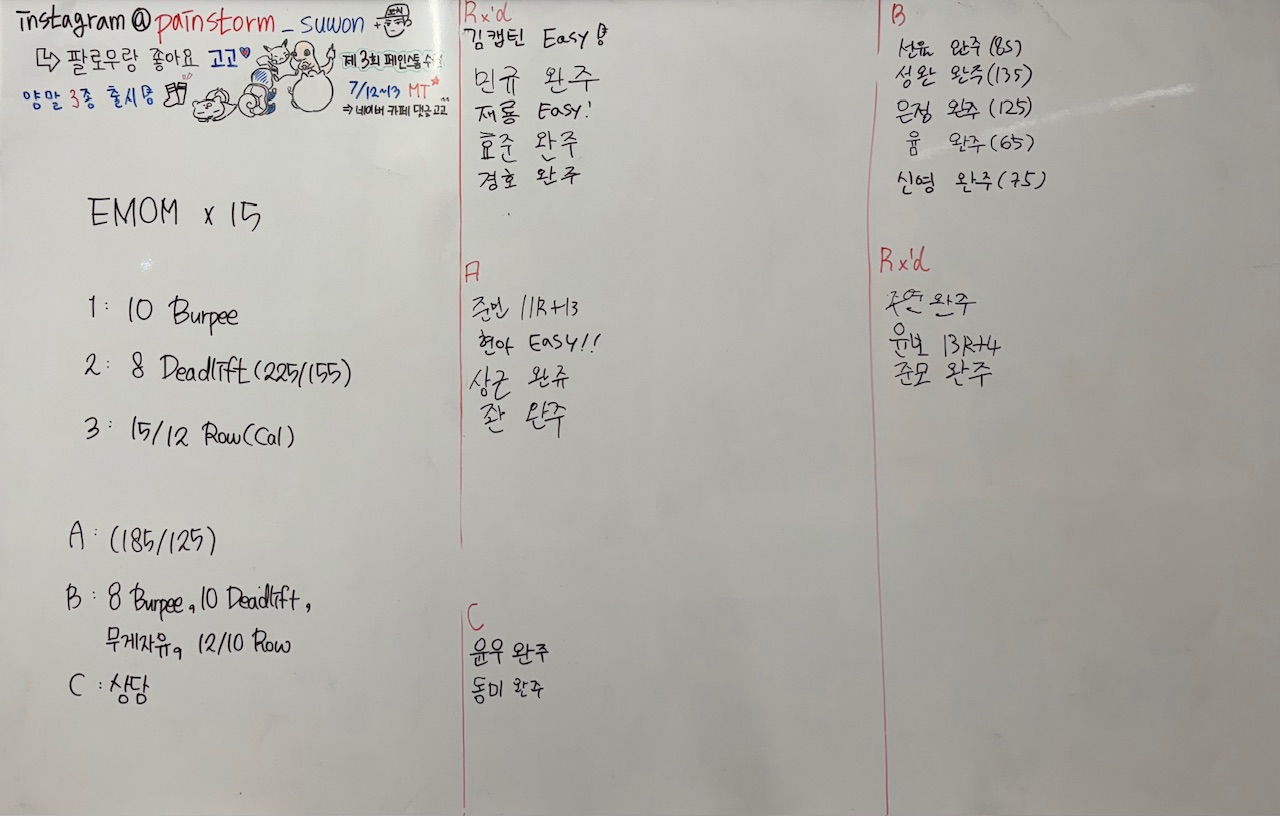 instagram@painstorm_suwon
↳ 팔로우랑 좋아요 고고♥
양말 3종 출시
제 3회 페인스톰 수원
7/12~13 MT*
⇒ 네이버 카페 댓글 고고
EMOM x 15
1: 10 Burpee
2: 8 Deadlift (225/155)
3: 15/12 Row(Cal)
A: (185/125)
B: 8 Burpee, 10 Deadlift,
무게자유, 12/10 Row
C: 상담
Rx'd
김캡틴 Easy!
민규 완주
재룡 Easy!
효준 완주
경호 완주
A
준민 11R+13
현아 Easy!!
상근 완쥬
좐 완주
C
윤우 완주
동미 완주
B
선윤 완주(85)
성완 완주(135)
은정 완주(125)
윰 완주(65)
신영 완주(75)
Rx'd
완주
13R+4
준모 완주